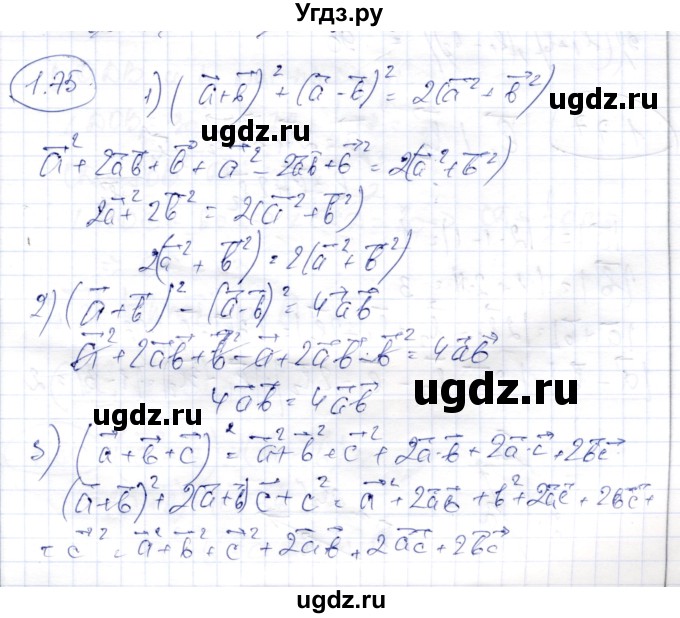 Угдз.ру
1.75
1) (a⃗+b⃗)² + (a⃗-b⃗)² = 2(a⃗² + b⃗²)
ugdz.ru
a⃗² + 2a⃗b⃗ + b⃗ + a⃗² - 2a⃗b⃗ + b⃗² = 2(a⃗² + b⃗²)
2a⃗² + 2b⃗² = 2(a⃗² + b⃗²)
2(a⃗² + b⃗²) = 2(a⃗² + b⃗²)
2) (a⃗ + b⃗)² - (a⃗-b⃗)² = 4a⃗b⃗
a⃗² + 2a⃗b⃗ + b⃗² - a⃗ + 2a⃗b⃗ - b⃗² = 4a⃗b⃗
ugdz.ru
4a⃗b⃗ = 4a⃗b⃗
ugdz.ru
3) (a⃗ + b⃗ + c⃗)² = a⃗² + b⃗² + c⃗² + 2a⃗·b⃗ + 2a⃗·c⃗ + 2b⃗c⃗
(a⃗+b⃗)² + 2(a⃗+b⃗)c⃗ + c² = a⃗² + 2a⃗b⃗ + b² + 2a⃗c⃗ + 2b⃗c⃗ +
+ c⃗² = a⃗² + b⃗² + c⃗² + 2a⃗b⃗ + 2a⃗c⃗ + 2b⃗c⃗
ugdz.ru
ugdz.ru